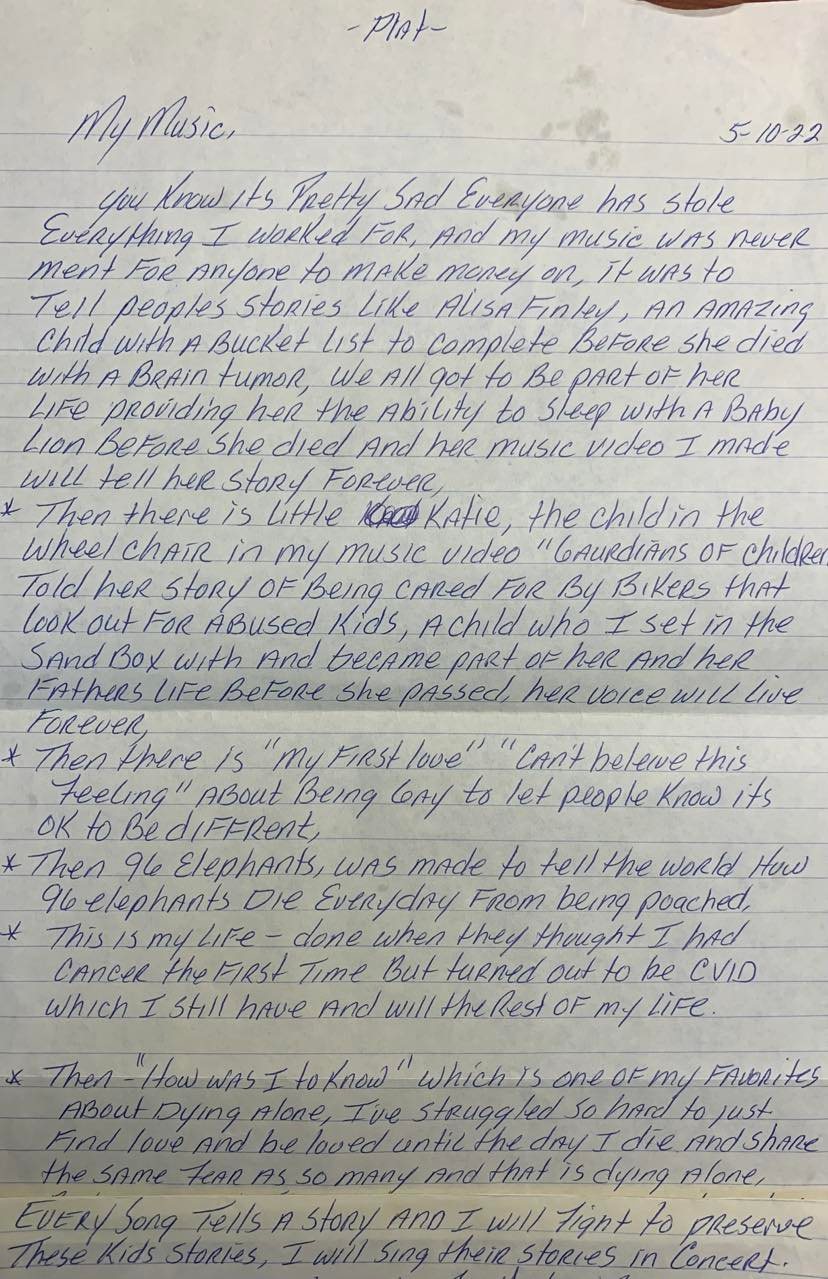 -Plat-
My Music, 5-10-22
you Know its Pretty Sad Everyone has stole
Everything I worked For, And my music was never
ment For Anyone to make money on, it was to
Tell peoples Stories Like Alisa Finley, An Amazing
Child with A Bucket List to complete Before she died
with A Brain tumor, We All got to Be part of her
Life providing her the Ability to Sleep with A Baby
Lion Before She died And her music video I made
will tell her Story Forever,
* Then there is Little Katie, the child in the
Wheel chair in my music video "Gaurdians of Children
Told her Story of Being cared For By Bikers that
look out For Abused Kids, A child who I set in the
Sand Box with And became part of her And her
Fathers Life Before She passed, her voice will live
Forever,
* Then there is "my First love" "Can't beleive this
Feeling" About Being Gay to let people Know its
OK to Be diFFRent,
* Then 96 Elephants, was made to tell the world How
96 elephants Die Everyday From being poached,
* This is my Life - done when they thought I had
Cancer the First Time But turned out to be CVID
which I still have And will the Rest of my Life.
* Then - "How was I to Know" which is one of my Favorites
About Dying Alone, I've Struggled so hard to just
Find love And be loved until the day I die And share
the same Fear As so many And that is dying Alone,
Every Song Tells A Story And I will Fight to preserve
These Kids Stories, I will Sing their Stories in Concert.